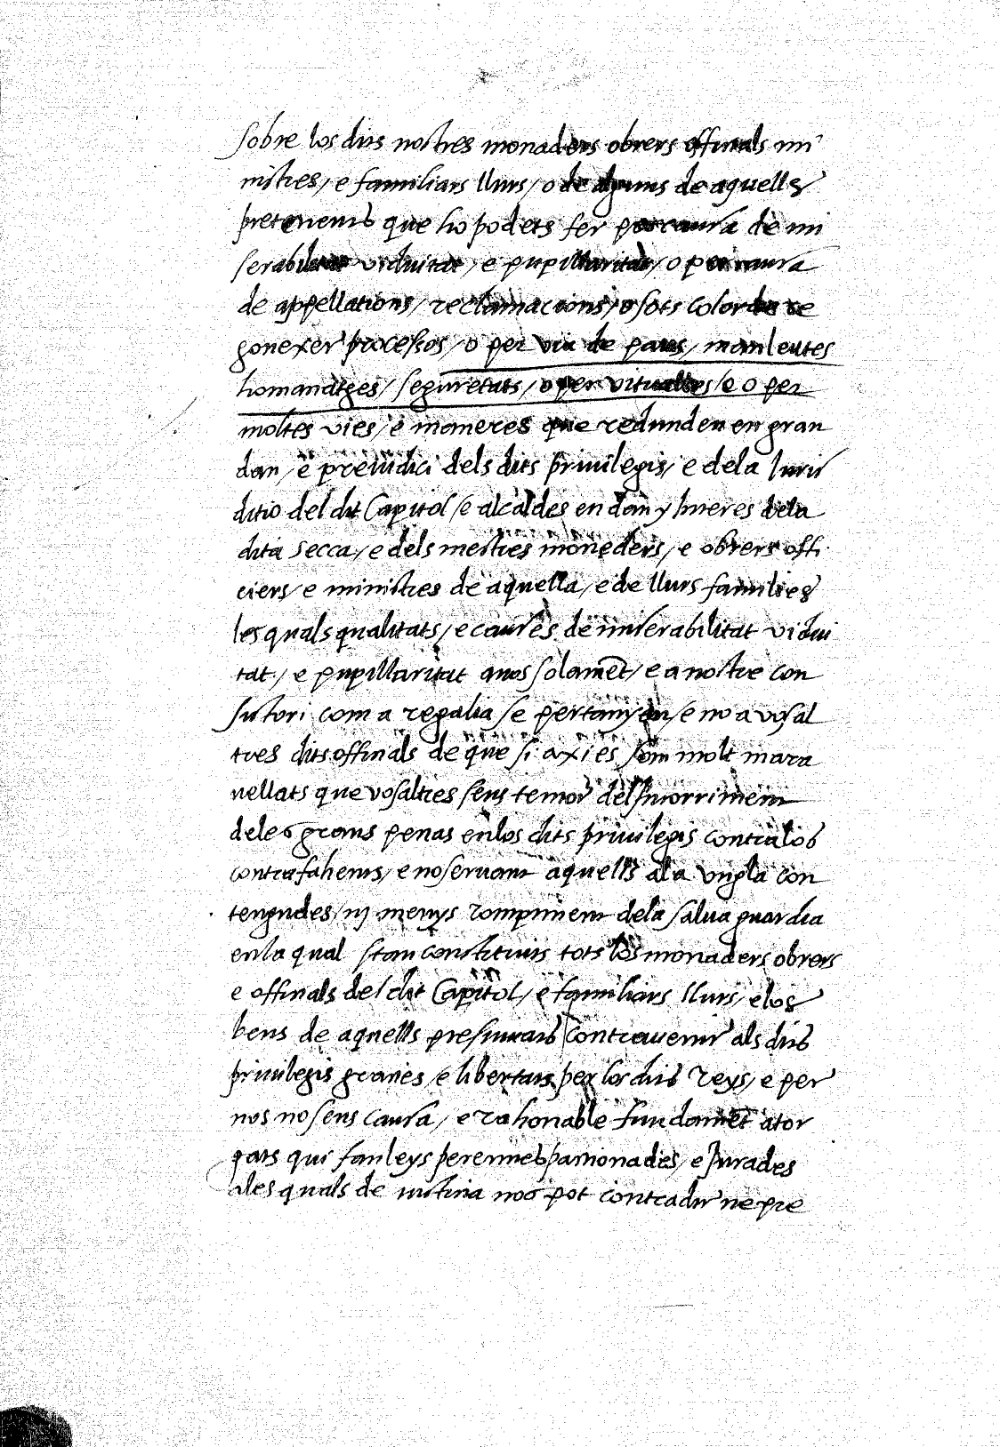 sobre los dits nostres monaders obrers officials mi
nistres / e familiars llurs / o de alguns de aquells
pretenents que ho podets fer per causa de mi
serabilitat viduitat / e pupillaritat / o per causa
de appellations / reclamacions / o sots color de re
gonexer processos / o per via de paus / manleutes
homanatges / seguretats / o per vitualles / e o per
moltes vies / e maneres que redunden en gran
dan / e preiudici dels dits privilegis / e dela Juris
ditio del dit Capitol / e alcaldes en dan y Interes dela
dita Secca / e dels mestres moneders / e obrers offi
ciers / e ministres de aquella / e de llurs families
les quals qualitats / e causes de miserabilitat vidui
tat / e pupillaritat a nos solamēt / e a nostre con
sistori com a regalia se pertanyen / e no a vosal
tres dits officials de que si axi es som molt mara
vellats que vosaltres sens temor del Incorriment
deles grans penas en los dits privilegis contra los
contrafahents / e no servant aquells ala ungla con
tengudes / ny menys rompiment dela salva guardia
en la qual stan constituits tots los monaders obrers
e officials del dit Capitol / e familiars llurs / e los
bens de aquells presumats contravenir als dits
privilegis gracies / e libertats per los dits Reys / e per
nos no sens causa / e rahonable fundamēt ator
gats qui fan leys perennes pactionades / e Jurades
ales quals de iusticia nos pot contradir ne pre